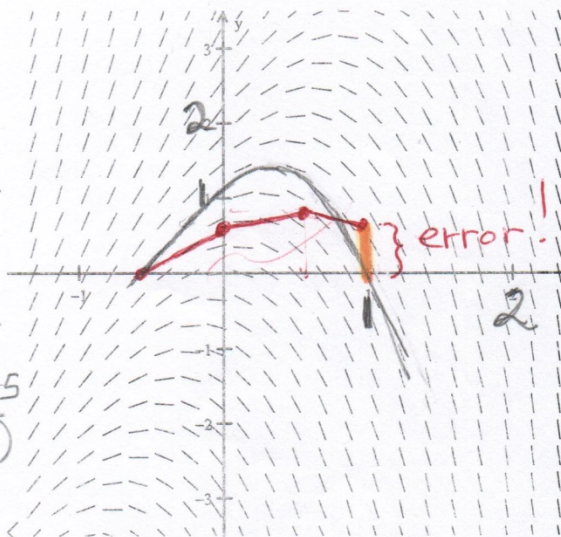 y
3
2
1
error!
-1
1
2
-1
5
-2
-3